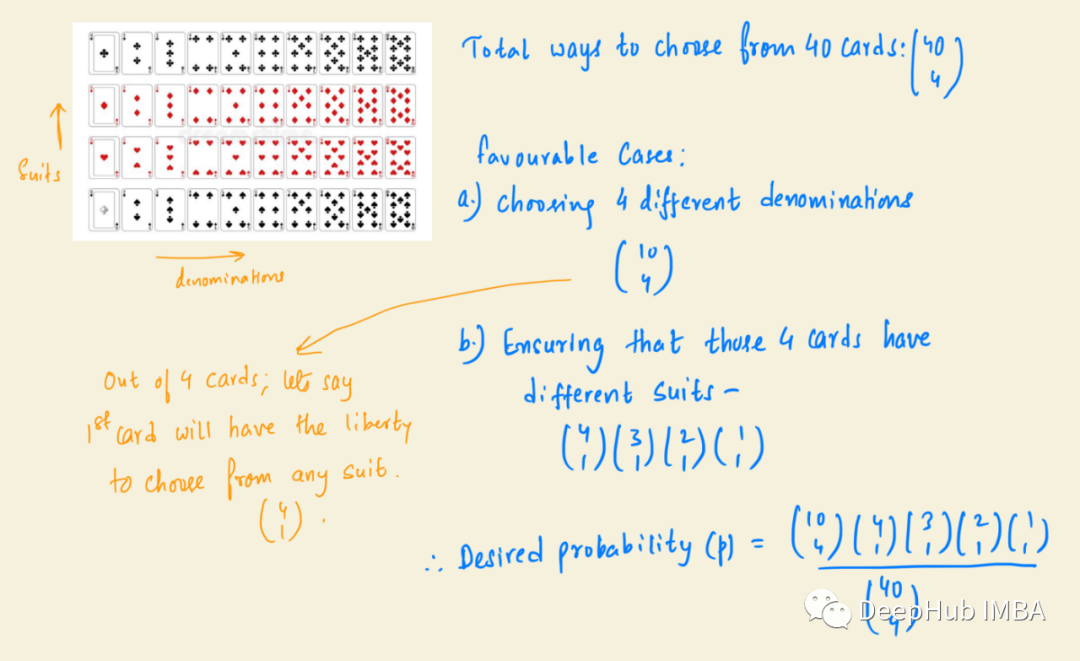 Total ways to choose from 40 cards: (40 4)
favourable Cases:
a.) Choosing 4 different denominations
(10 4)
b.) Ensuring that those 4 cards have
different suits -
(4 1)(3 1)(2 1)(1 1)
∴ Desired probability (p) = (10 4)(4 1)(3 1)(2 1)(1 1)
(40 4)
Suits
denominations
Out of 4 cards; lets say
1st card will have the liberty
to choose from any suit.
(4 1).
DeepHub IMBA